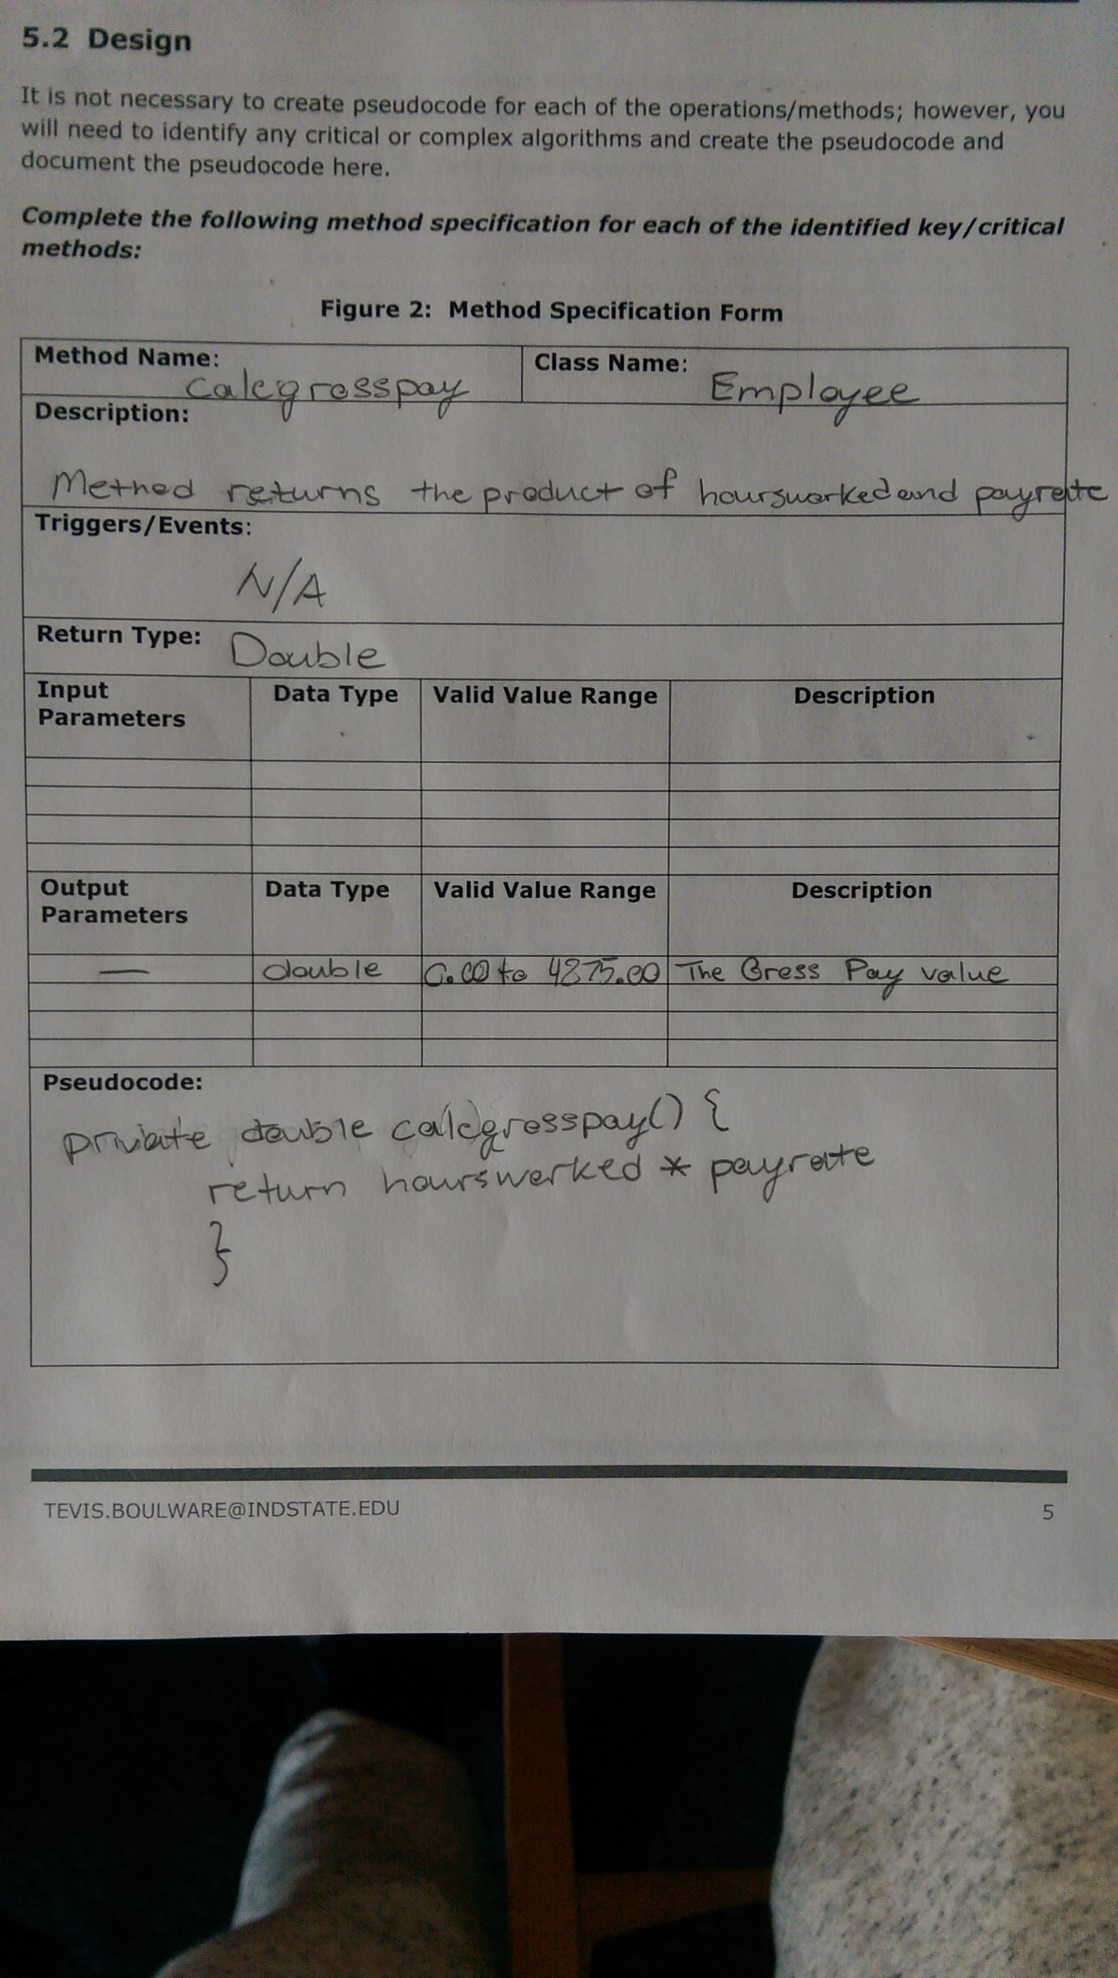 5.2 Design
It is not necessary to create pseudocode for each of the operations/methods; however, you
will need to identify any critical or complex algorithms and create the pseudocode and
document the pseudocode here.
Complete the following method specification for each of the identified key/critical
methods:
Figure 2: Method Specification Form
Method Name: calcgrosspay
Class Name: Employee
Description:
Method returns the product of hoursworked and payrate
Triggers/Events:
N/A
Return Type: Double
Input Parameters Data Type Valid Value Range Description
Output Parameters Data Type Valid Value Range Description
— double 0.00 to 4875.00 The Gross Pay value
Pseudocode:
private double calcgrosspay() {
return hoursworked * payrate
}
TEVIS.BOULWARE@INDSTATE.EDU 5